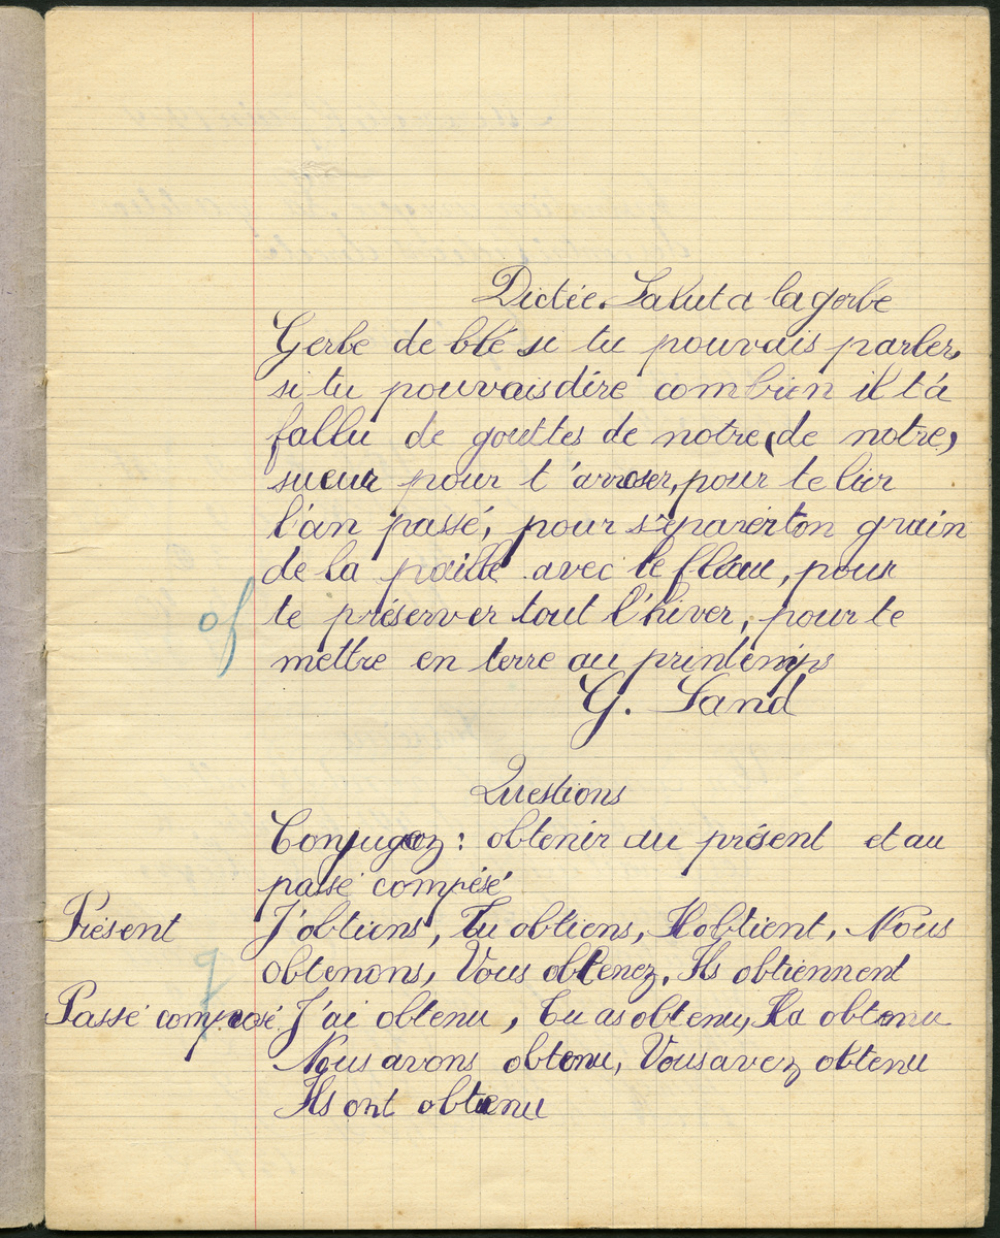 Dictée. Salut a la gerbe
Gerbe de blé si tu pouvais parler,
si tu pouvais dire combien il t'a
fallu de gouttes de notre (de notre)
sueur pour t'arroser, pour te lier
l'an passé, pour séparer ton grain
de la paille avec le fléau, pour
te préserver tout l'hiver, pour te
mettre en terre au printemps
G. Sand
Questions
Conjugez : obtenir au présent et au
passé composé
Présent J'obtiens, Tu obtiens, Il obtient, Nous
obtenons, Vous obtenez, Ils obtiennent
Passé composé J'ai obtenu, Tu as obtenu, Il a obtenu
Nous avons obtenu, Vous avez obtenu
Ils ont obtenu